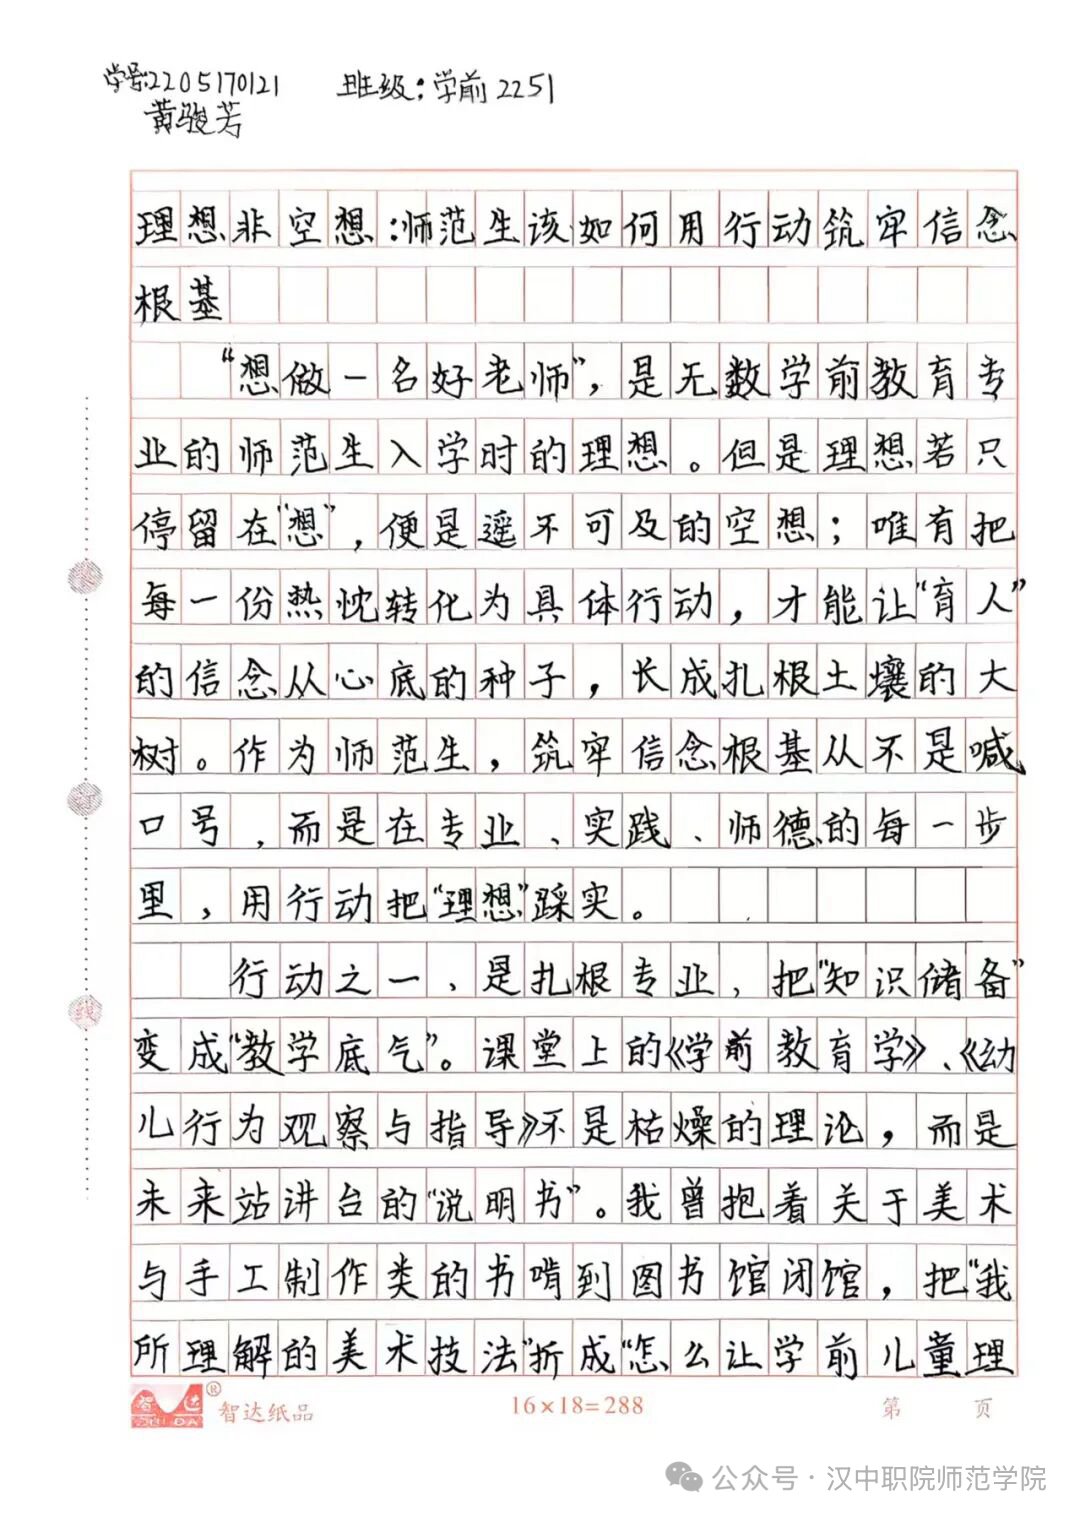 学号:2205170121 班级:学前2251
黄骏芳
理想非空想:师范生该如何用行动筑牢信念
根基
“想做一名好老师”，是无数学前教育专
业的师范生入学时的理想。但是理想若只
停留在“想”，便是遥不可及的空想；唯有把
每一份热忱转化为具体行动，才能让“育人”
的信念从心底的种子，长成扎根土壤的大
树。作为师范生，筑牢信念根基从不是喊
口号，而是在专业、实践、师德的每一步
里，用行动把“理想”踩实。
行动之一、是扎根专业，把“知识储备”
变成“教学底气”。课堂上的《学前教育学》、《幼
儿行为观察与指导》不是枯燥的理论，而是
未来站讲台的“说明书”。我曾抱着关于美术
与手工制作类的书啃到图书馆闭馆，把“我
所理解的美术技法”折成“怎么让学前儿童理
订
线
智达
ZHI DA
® 智达纸品 16×18=288 第 页
公众号·汉中职院师范学院